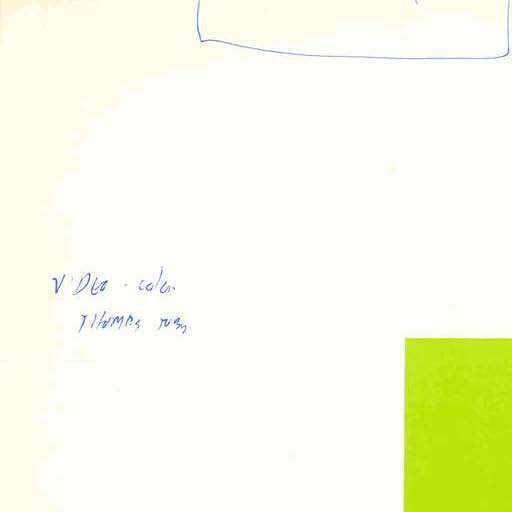 VIDEO - color
THOMAS